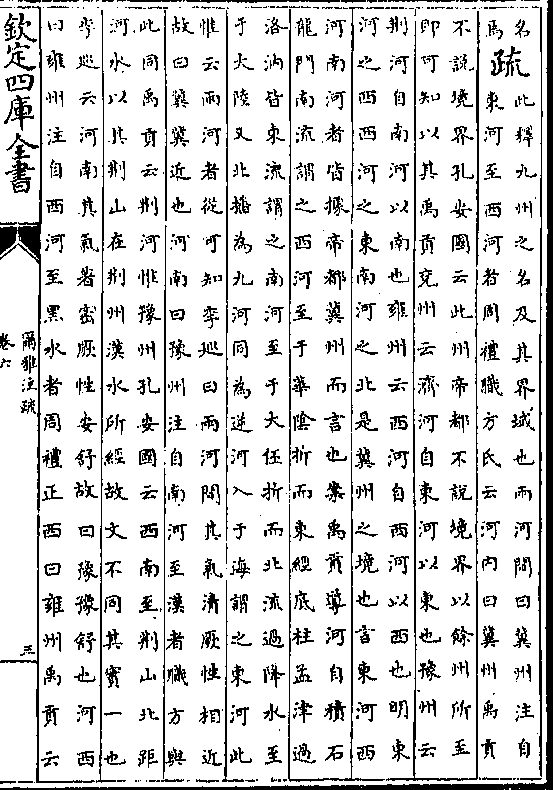 名
焉
疏
此釋九州之名及其界域也兩河間曰冀州注自
東河至西河者周禮職方氏云河内曰冀州禹貢
不說境界孔安國云此州帝都不說境界以餘州所至
即可知以其禹貢兗州云濟河自東河以東也豫州云
荆河自南河以南也雍州云西河自西河以西也明東
河之西西河之東南河之北是冀州之境也言東河西
河南河者皆據帝都冀州而言也案禹貢導河自積石
龍門南流謂之西河至于華陰折而東經底柱孟津過
洛汭皆東流謂之南河至于大伾折而北流過降水至
于大陸又北播為九河同為逆河入于海謂之東河此
惟云兩河者從可知李巡曰兩河間其氣清厥性相近
故曰冀冀近也河南曰豫州注自南河至漢者職方與
此同禹貢云荆河惟豫州孔安國云西南至荆山北距
河水以其荆山在荆州漢水所經故文不同其實一也
李巡云河南其氣著密厥性安舒故曰豫豫舒也河西
曰雍州注自西河至黑水者周禮正西曰雍州禹貢云
欽定四庫全書
爾雅注疏
卷六
三